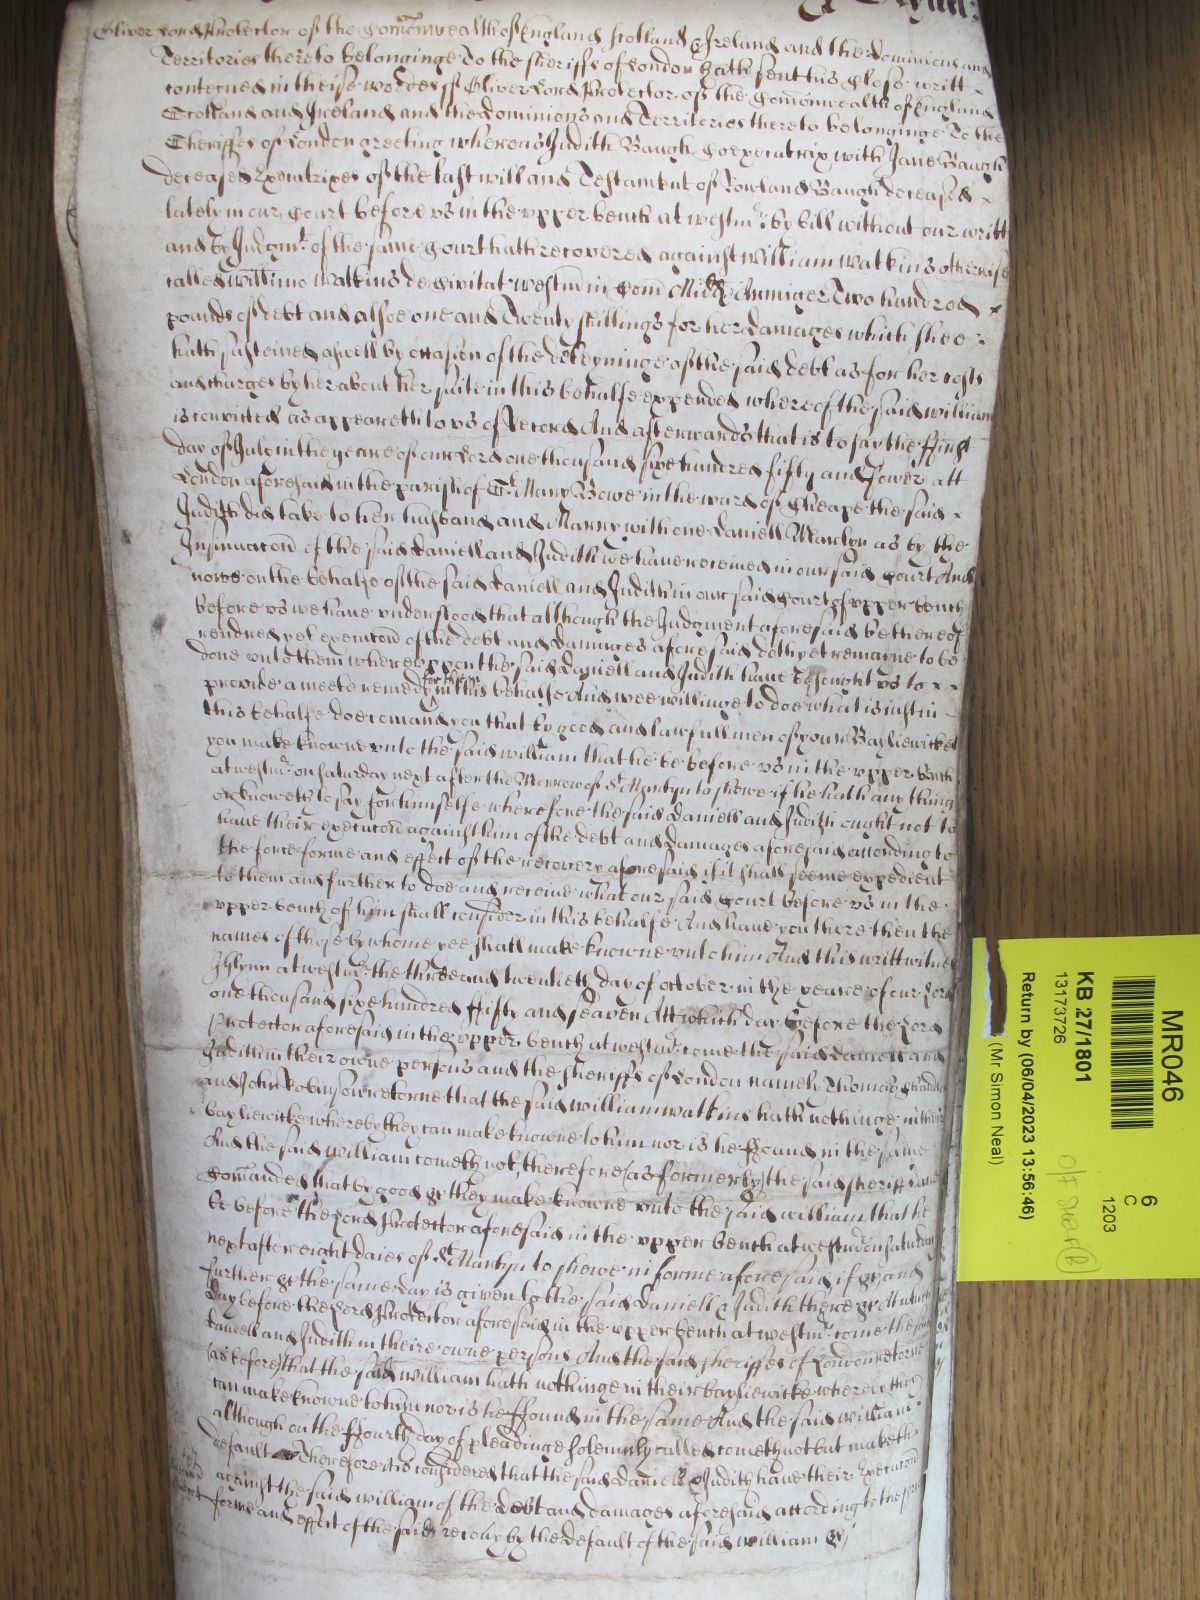 Oliver Lord Protector of the Comonwealth of England Scotland & Ireland and the Dominions and
Territories thereto belonginge To the Sheriffs of London hath sent his Close writt
conteyned in theise wordes ss Oliver Lord Protector of the Comonwealth of England
Scotland and Ireland and the dominions and Territories thereto belonginge To the
Sheriffes of London greeting whereas Judith Baugh Coexecutrix with Jane Baugh
deceased Executrixes of the last will and Testament of Rowland Baugh deceased
lately in our Court before us in the upper bench at westmr. by bill without our writt
and by Judgmt. of the same Court hath recovered against William Watkins otherwise
called Willimo Watkins de Civitat westm in Com Midd Armiger Two hundred
pounds of debt and alsoe one and Twenty shillings for her damages which shee
hath susteined aswell by occasion of the deteyninge of the said debt as for her costs
and charges by her about her suite in this behalfe expended whereof the said william
is convicted as appeareth to us of Record And afterwards that is to say the ffirst
day of July in the yeare of our Lord one thousand sixe hundred fifty and fower att
London aforesaid in the parish of St. Mary Bowe in the ward of Cheape the said
Judith did take to her husband and Marry with one Daniell Martyn as by the
Insinuacon of the said Daniell and Judith we have received in our said Court And
nowe on the behalfe of the said Daniell and Judith in our said Court of upper bench
before us we have understood that although the Judgment aforesaid be thereof
rendred yet execucon of the debt and damages aforesaid doth yet remayne to be
done unto them whereuppon the said Daniell and Judith have besought us to
provide a meete remedy for them in this behalfe And wee willinge to doe what is iust in
this behalfe doe comand you that by good and lawfull men of your Bayliewicke
you make knowne unto the said william that he be before us in the upper bench
at westmr. on Saturday next after the Morrow of St. Martyn to shewe if he hath any thing
or knoweth to say for himselfe wherefore the said Daniell and Judith ought not to
have their execucon against him of the debt and damages aforesaid according to
the force forme and effect of the recovery aforesaid if it shall seeme expedient
to them and further to doe and receive what our said Court before us in the
upper bench of him shall consider in this behalfe And have you there then the
names of those by whome yee shall make knowne unto him And this writt witnes
Glynn at westmr. the three and twentieth day of october in the yeare of our Lord
one thousand sixe hundred ffifty and seaven Att which day before the Lord
Protector aforesaid in the upper bench at westmr. come the said Daniell and
Judith in their owne persons and the Sheriffs of London namely Thomas
and John Robinson retorne that the said william watkins hath nothinge in their
bayliewicke whereby they can make knowne to him nor is he ffound in the same
And the said william cometh not therefore (as formerly) the said Sheriffs are
Comanded that by good &c they make knowne unto the said william that he
be before the Lord Protector aforesaid in the upper bench at westmr. on Saturday
next after eight daies of St. Martyn to shewe in forme aforesaid if &c and
further &c the same day is given to the said Daniell & Judith there &c At which
day before the Lord Protector aforesaid in the upper bench at westmr. come the said
Daniell and Judith in theire owne persons And the said Sheriffes of London retorne
(as before) that the said william hath nothinge in their bayliewicke whereby they
can make knowne to him nor is he ffound in the same And the said william
although on the ffourth day of pleadinge solemnly called cometh not but maketh
default Therefore it is considered that the said Daniell & Judith have their Execucon
against the said william of the debt and damages aforesaid according to the force
forme and effect of the said recovy by the default of the said william &c
MR046
6
C
1203
KB 27/1801
13173726
Return by (06/04/2023 13:56:46)
(Mr Simon Neal)